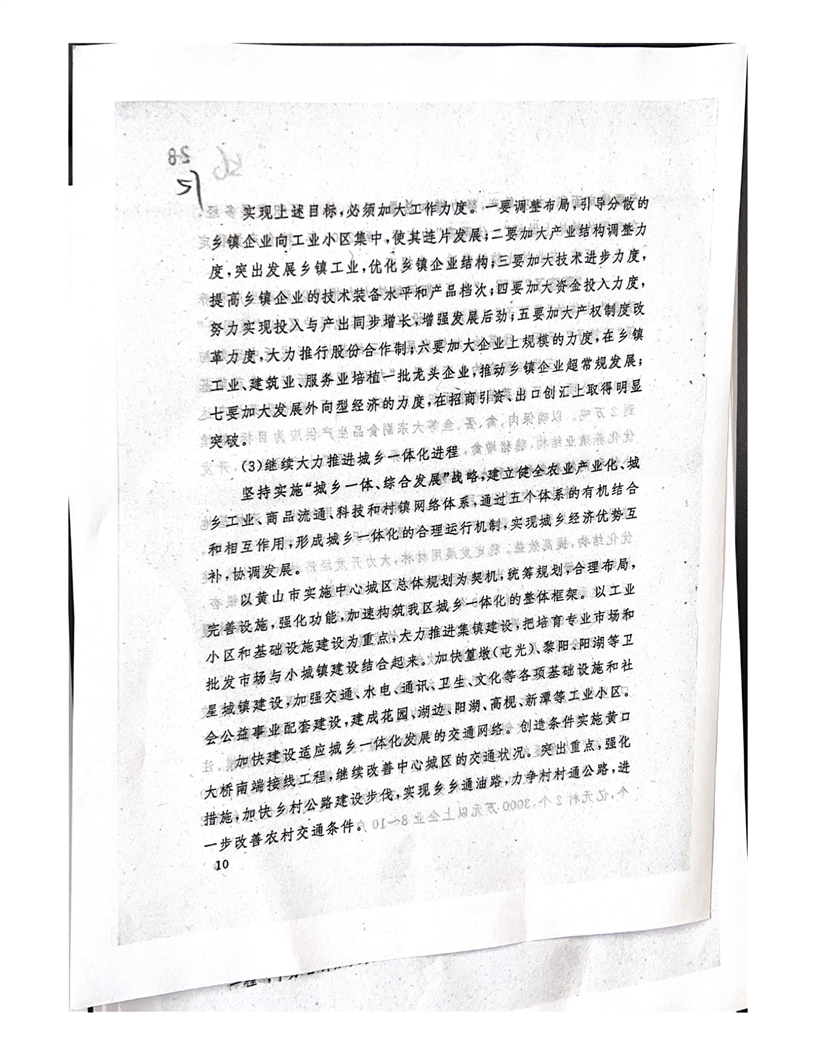 实现上述目标,必须加大工作力度。一要调整布局,引导分散的
乡镇企业向工业小区集中,使其连片发展;二要加大产业结构调整力
度,突出发展乡镇工业,优化乡镇企业结构;三要加大技术进步力度,
提高乡镇企业的技术装备水平和产品档次;四要加大资金投入力度,
努力实现投入与产出同步增长,增强发展后劲;五要加大产权制度改
革力度,大力推行股份合作制;六要加大企业上规模的力度,在乡镇
工业、建筑业、服务业培植一批龙头企业,推动乡镇企业超常规发展;
七要加大发展外向型经济的力度,在招商引资、出口创汇上取得明显
突破。
(3)继续大力推进城乡一体化进程
坚持实施“城乡一体、综合发展”战略,建立健全农业产业化、城
乡工业、商品流通、科技和村镇网络体系,通过五个体系的有机结合
和相互作用,形成城乡一体化的合理运行机制,实现城乡经济优势互
补,协调发展。
以黄山市实施中心城区总体规划为契机,统筹规划,合理布局,
完善设施,强化功能,加速构筑我区城乡一体化的整体框架。以工业
小区和基础设施建设为重点,大力推进集镇建设,把培育专业市场和
批发市场与小城镇建设结合起来。加快篁墩(屯光)、黎阳、阳湖等卫
星城镇建设,加强交通、水电、通讯、卫生、文化等各项基础设施和社
会公益事业配套建设,建成花园、湖边、阳湖、高枧、新潭等工业小区。
加快建设适应城乡一体化发展的交通网络。创造条件实施黄口
大桥南端接线工程,继续改善中心城区的交通状况。突出重点,强化
措施,加快乡村公路建设步伐,实现乡乡通油路,力争村村通公路,进
一步改善农村交通条件。
10